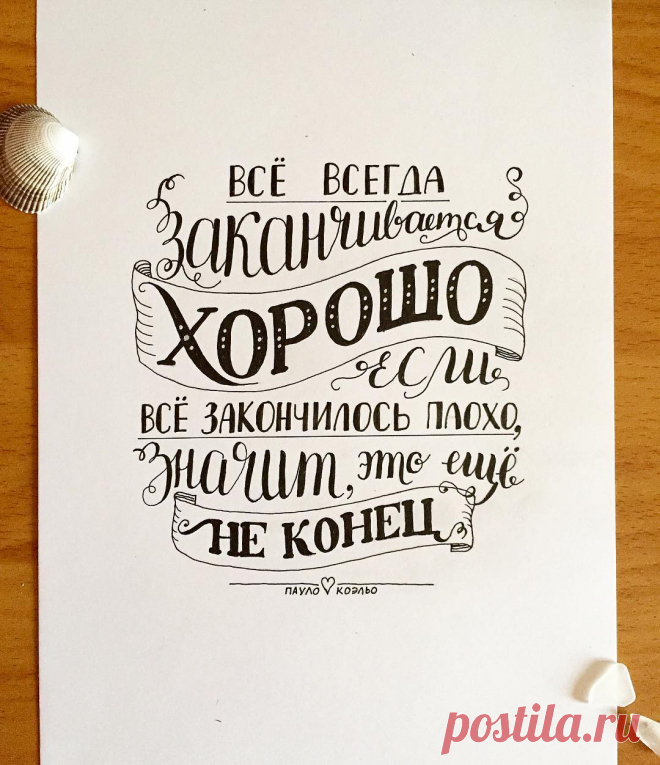 ВСЁ ВСЕГДА
заканчивается
ХОРОШО
если
ВСЁ ЗАКОНЧИЛОСЬ ПЛОХО,
значит, это ещё
НЕ КОНЕЦ
ПАУЛО КОЭЛЬО
postila.ru